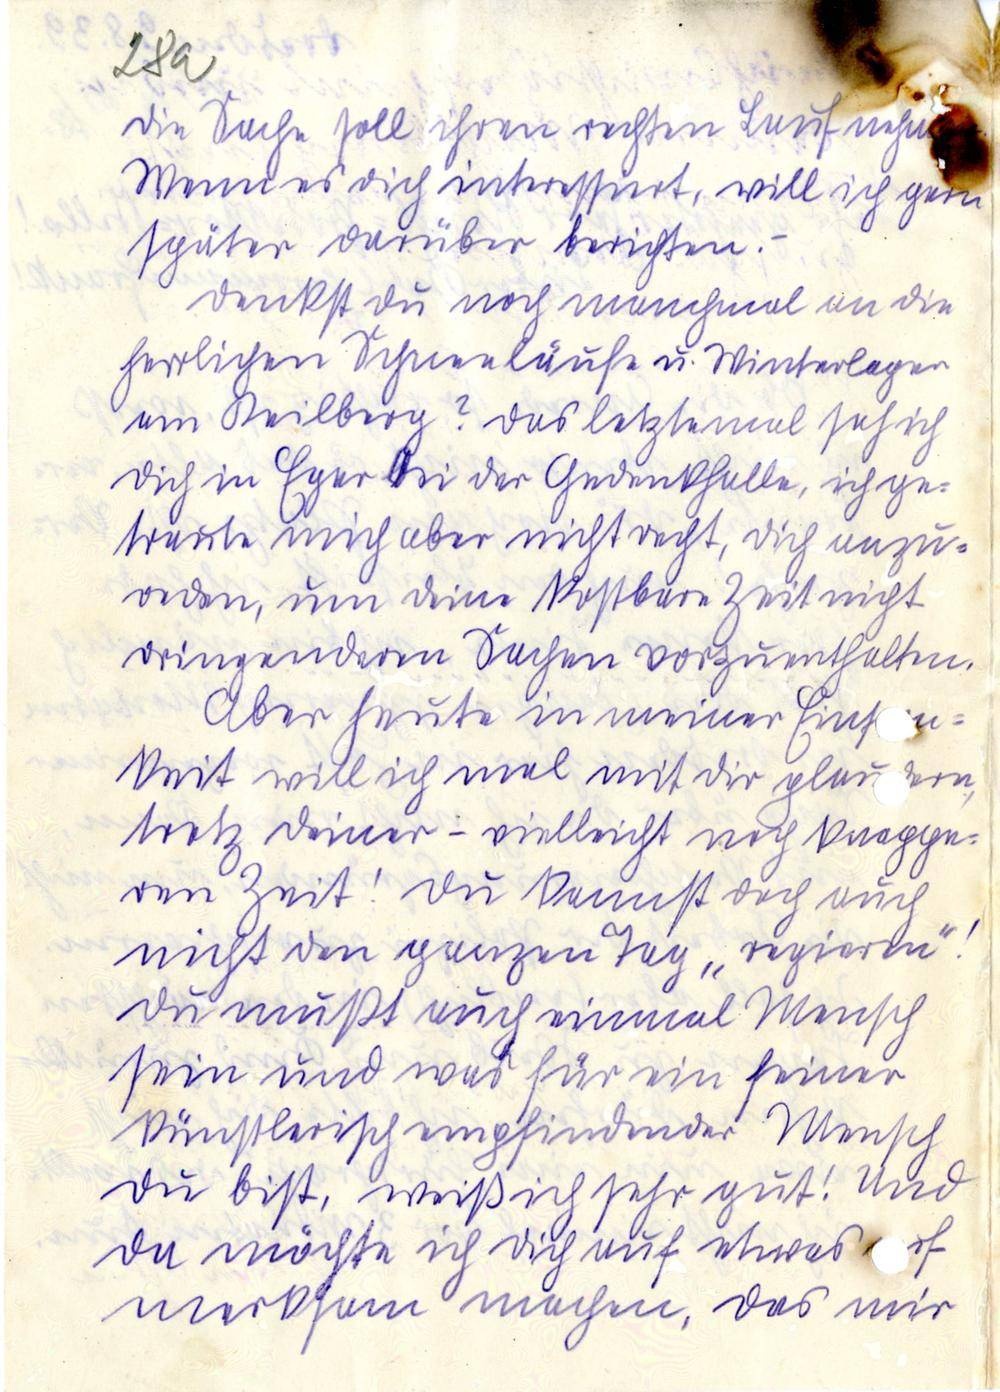 28a
die Sache soll ihren rechten Lauf nehm
Wenn es dich interessiert, will ich gern
später darüber berichten.-
Denkst du noch manchmal an die
herrlichen Schneeläufe u. Winterlager
am Keilberg? Das letztemal sah ich
dich in Eger bei der Gedenkhalle, ich ge-
traute mich aber nicht recht, dich anzu-
reden, um deine kostbare Zeit nicht
dringenderen Sachen vorzuenthalten.
Aber heute in meiner Einsam-
keit will ich mal mit dir plaudern,
trotz deiner - vielleicht noch knappe-
ren Zeit! Du kannst doch auch
nicht den ganzen Tag „regieren"!
Du mußt auch einmal Mensch
sein und was für ein feiner
künstlerisch empfindender Mensch
du bist, weiß ich sehr gut! Und
da möchte ich dich auf etwas auf
merksam machen, das mir